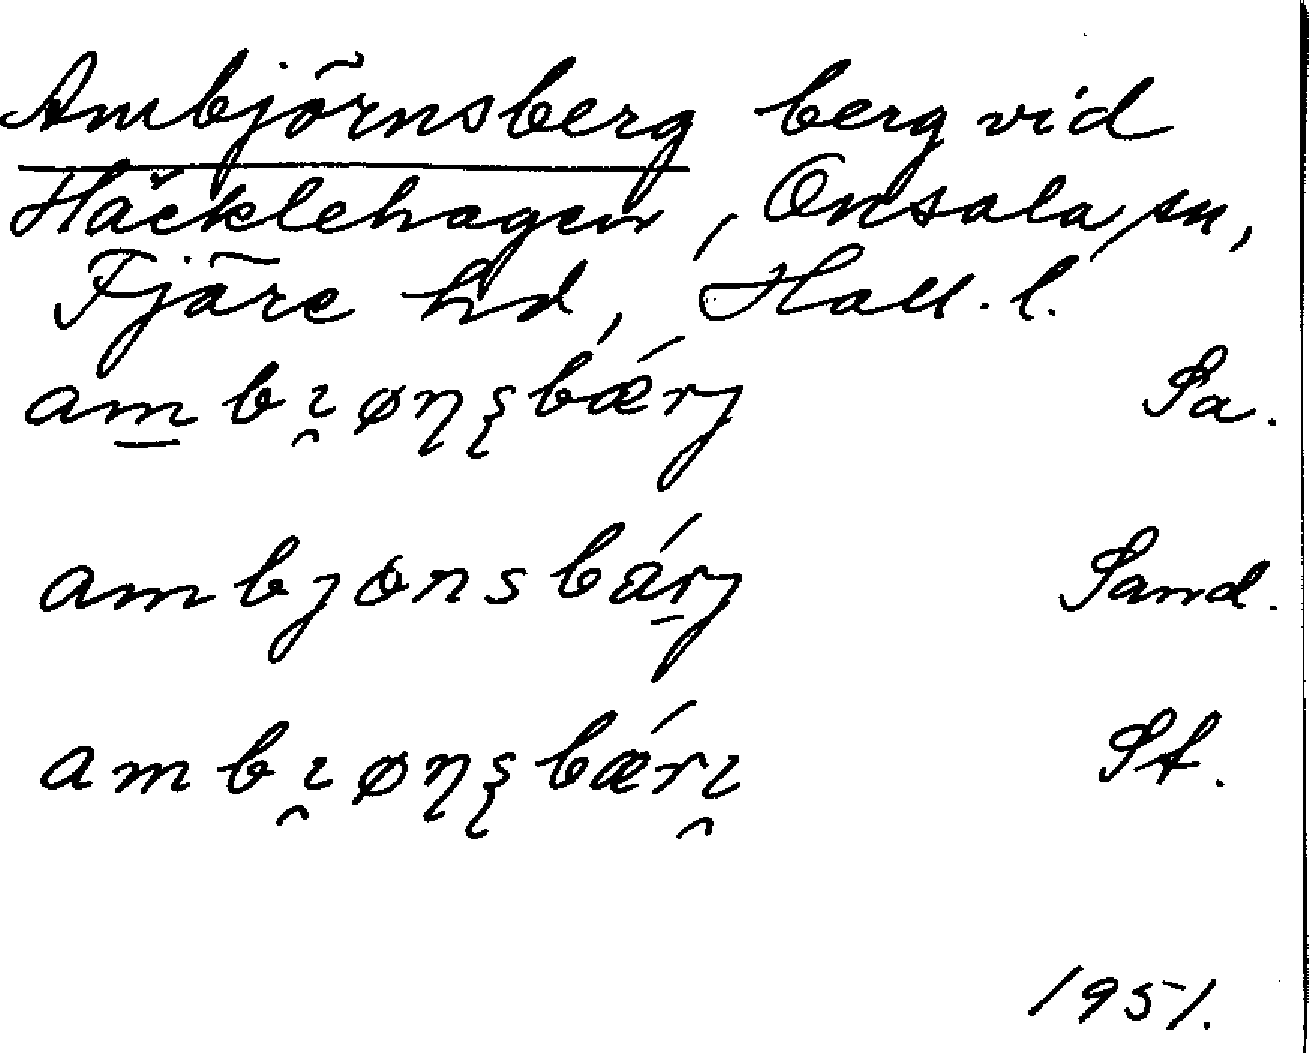 Ambjörnsberg berg vid
Häcklehagen, Onsala sn,
Fjäre hd, Hall. l.
am̲bı̯øɳʂbǽrj Sa.
ambjonsbár̲j Sand.
ambı̯øɳʂbǽrı̯ St.
1951.